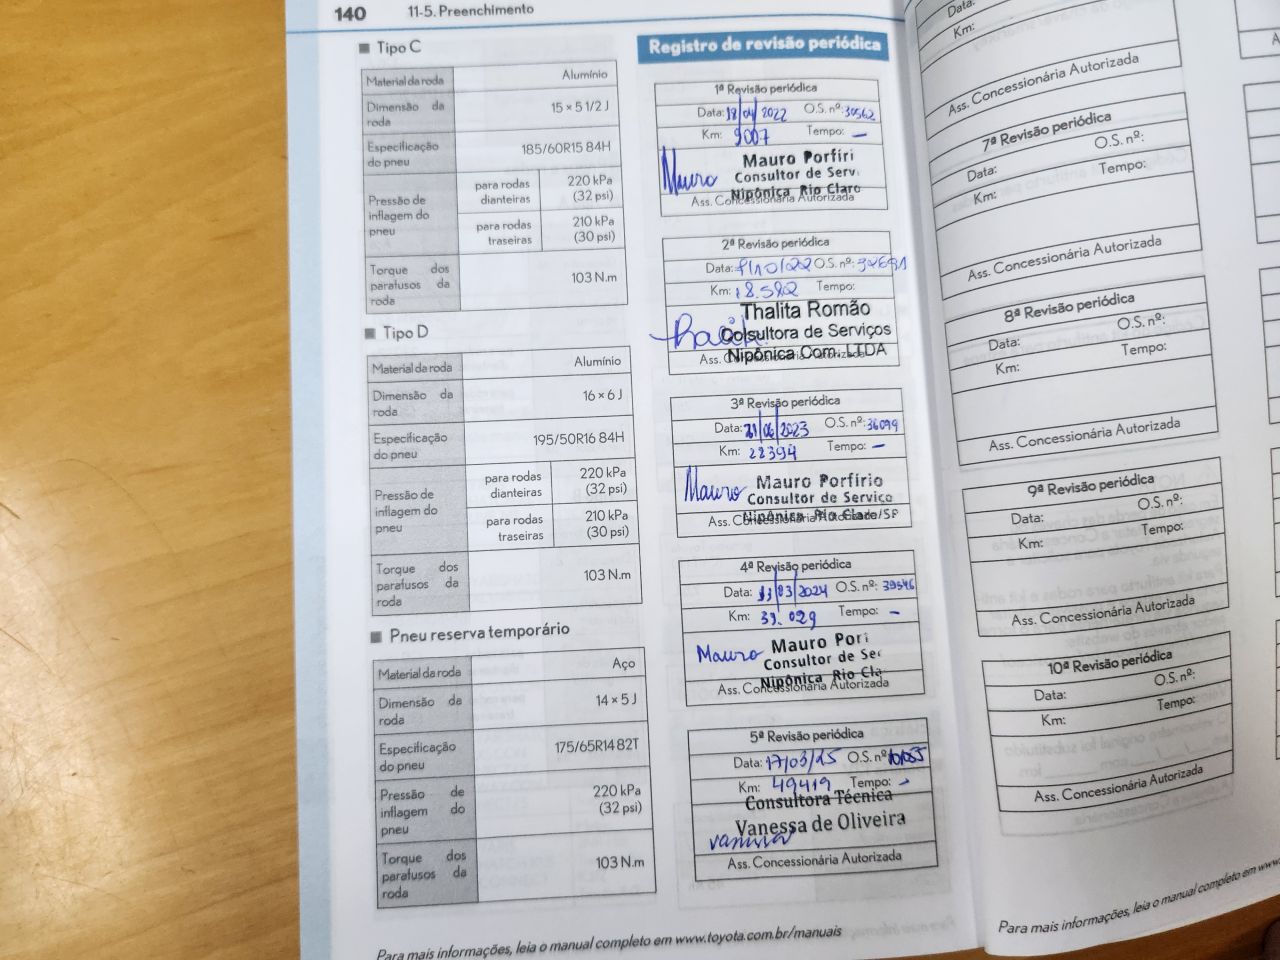 140 11-5. Preenchimento
■ Tipo C
Material da roda Alumínio
Dimensão da roda 15 × 5 1/2 J
Especificação do pneu 185/60R15 84H
Pressão de inflagem do pneu
para rodas dianteiras 220 kPa (32 psi)
para rodas traseiras 210 kPa (30 psi)
Torque dos parafusos da roda 103 N.m
■ Tipo D
Material da roda Alumínio
Dimensão da roda 16 × 6 J
Especificação do pneu 195/50R16 84H
Pressão de inflagem do pneu
para rodas dianteiras 220 kPa (32 psi)
para rodas traseiras 210 kPa (30 psi)
Torque dos parafusos da roda 103 N.m
■ Pneu reserva temporário
Material da roda Aço
Dimensão da roda 14 × 5 J
Especificação do pneu 175/65R14 82T
Pressão de inflagem do pneu 220 kPa (32 psi)
Torque dos parafusos da roda 103 N.m
Para mais informações, leia o manual completo em www.toyota.com.br/manuais
Registro de revisão periódica
1ª Revisão periódica
Data: 18/04/2022 O.S. nº: 30562
Km: 9007 Tempo: —
Mauro
Mauro Porfiri
Consultor de Serv
Nipônica Rio Claro
Ass. Concessionária Autorizada
2ª Revisão periódica
Data: O.S. nº:
Km: 18.582 Tempo:
Thalita Romão
Consultora de Serviços
Nipônica Com. LTDA
Ass. Concessionária Autorizada
3ª Revisão periódica
Data: 21/06/2023 O.S. nº: 36099
Km: 28394 Tempo: —
Mauro
Mauro Porfírio
Consultor de Serviço
Nipônica Rio Claro/SP
Ass. Concessionária Autorizada
4ª Revisão periódica
Data: 13/03/2024 O.S. nº: 39546
Km: 39.029 Tempo: —
Mauro
Mauro Pori
Consultor de Ser
Nipônica Rio Cla
Ass. Concessionária Autorizada
5ª Revisão periódica
Data: 17/03/25 O.S. nº
Km: 49419 Tempo: -
Consultora Técnica
Vanessa de Oliveira
vanessa
Ass. Concessionária Autorizada
Data:
Km:
Ass. Concessionária Autorizada
7ª Revisão periódica
Data: O.S. nº:
Km: Tempo:
Ass. Concessionária Autorizada
8ª Revisão periódica
Data: O.S. nº:
Km: Tempo:
Ass. Concessionária Autorizada
9ª Revisão periódica
Data: O.S. nº:
Km: Tempo:
Ass. Concessionária Autorizada
10ª Revisão periódica
Data: O.S. nº:
Km: Tempo:
Ass. Concessionária Autorizada
Para mais informações, leia o manual completo em www